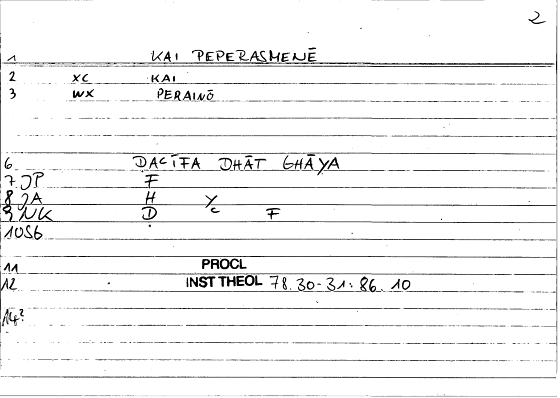 2
1 KAI PEPERASMENĒ
2 XC KAI
3 WX PERAINŌ
6 DACĪFA DHĀT GHĀYA
7 JP F
8 JA H Y/C
9 NK D F
10 SG
11 PROCL
12 INST THEOL 78.30-31: 86.10
14?